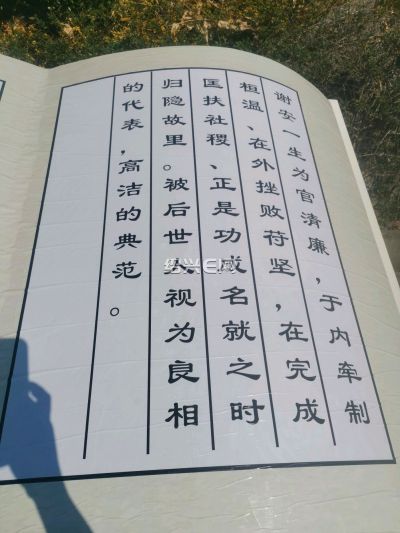 谢安一生为官清廉，于内牵制
桓温、在外挫败苻坚，在完成
匡扶社稷、正是功成名就之时
归隐故里。被后世人视为良相
的代表，高洁的典范。
绍兴E网